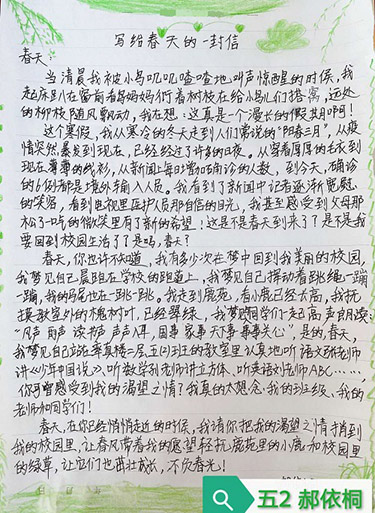 写给春天的一封信
春天:
当清晨我被小鸟叽叽喳喳地叫声惊醒的时候,我
起床趴在窗前看妈妈们衔着树枝在给小鸟们搭窝,远处
的柳枝随风飘动,我在想:这真是一个漫长的假期啊!
这个寒假,我从寒冷的冬天走到人们常说的"阳春三月",从疫
情突然暴发到现在,已经经过了许多的日夜。从穿着厚厚的毛衣到
现在薄薄的线衫,从新闻上每时增加确诊的人数,到今天,确诊
的6例都是境外输入人员。我看到了新闻中记者逐渐宽慰
的笑容,看到电视里医护人员那自信的目光,我甚至感受到父母那
松了一吃的微笑里有了新的希望!这是不是春天到来了?是不是我
要回到校园生活了?是吗,春天?
春天,你也许不知道,我有多少次在梦中回到我美丽的校园,
我梦见自己晨跑在学校的跑道上,我梦见自己挥动着跳绳一蹦
一蹦,我的马尾也在一跳一跳。我走到鹿苑,看小鹿已经长高,我抚
摸教室外的槐树叶,已经翠绿,我梦和同学们一起高声朗读:
"风声雨声读书声声声入耳,国事家事天下事事事关心",是的,春天,
我梦见自己站在率真楼二层五(2)班的教室里认真地听语文郝老师
讲《少年中国说》,听数学孙老师讲立方体、听英语刘老师ABC……,
你可曾感受到我的渴望之情?我真的太想念我的班级、我的
老师和同学们!
春天,在你已经悄悄走近的时候,我请你把我的渴望之情捎到
我的校园里,让春风带着我的愿望轻抚鹿苑里的小鹿和校园里
的绿草,让它们也茁壮成长,不负春光!
五2 郝依桐